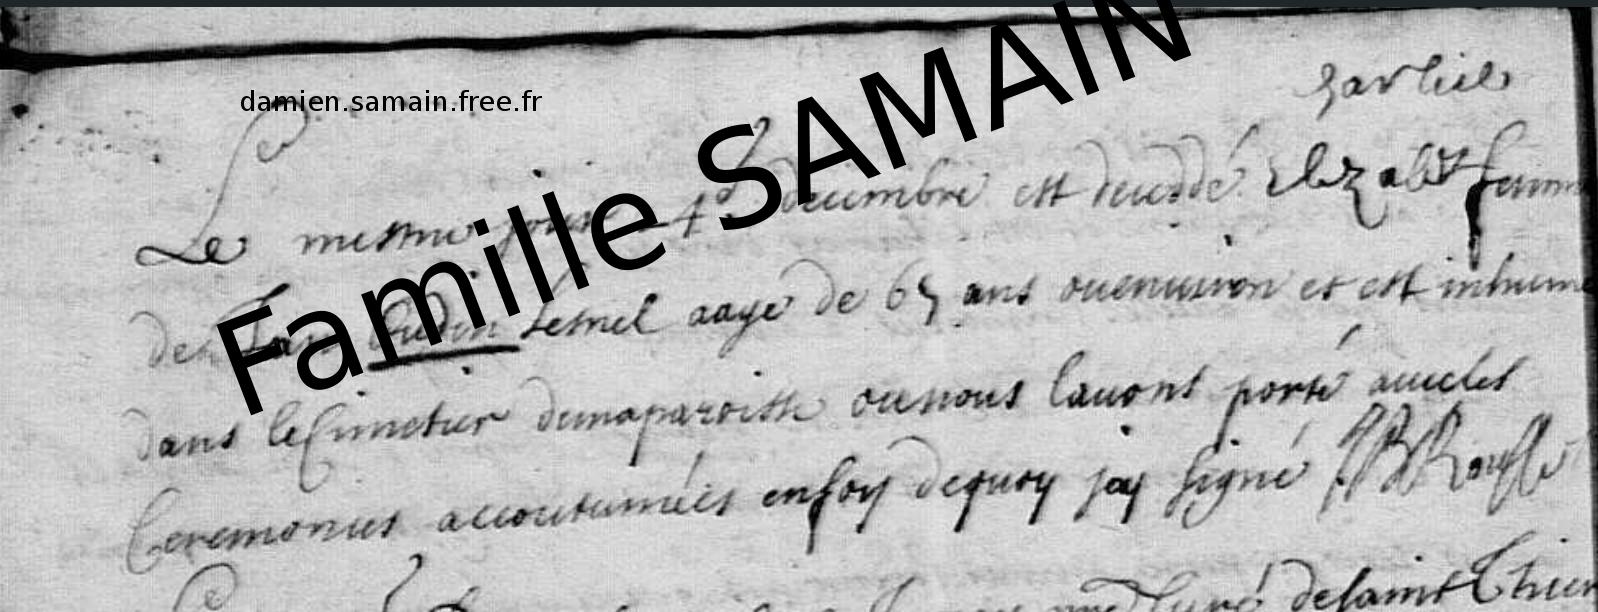 damien.samain.free.fr
Famille SAMAIN
Le mesme jour 4e decembre est decedé Elizabet femme
de Jan lesnel aagé de 65 ans ouenuiron et est inhume
dans le Cimetier demaparoisse ounous lauons porté auecles
Ceremonies accoutumées enfoy dequoy jay signé
desaint Thier